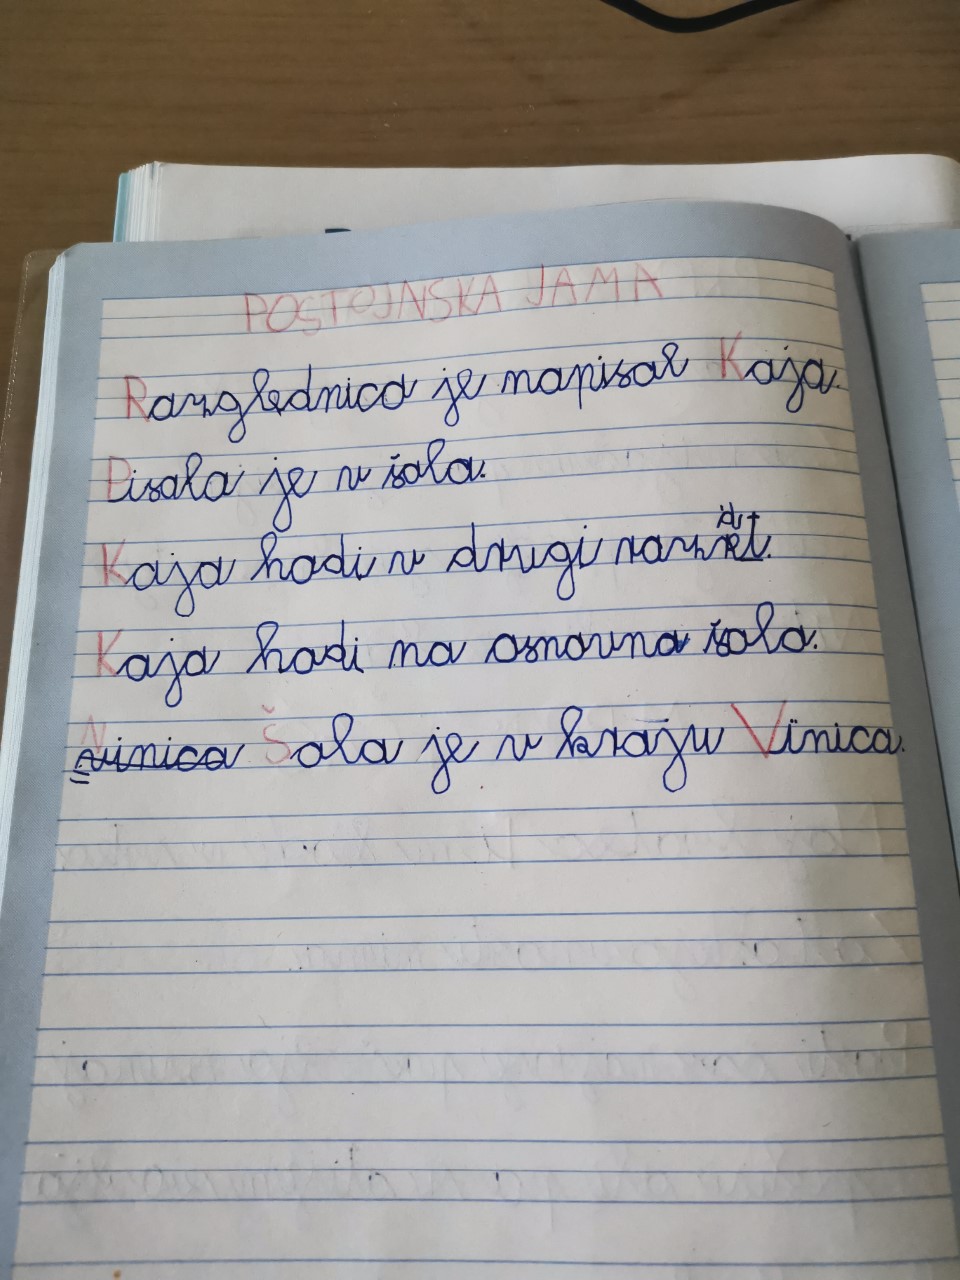 POSTOJNSKA JAMA
Razglednico je napisal Kaja.
Pisala je v šola.
Kaja hodi v drugi razred.
Kaja hodi na osnovna šolo.
vinica Šola je v kraju Vinica.